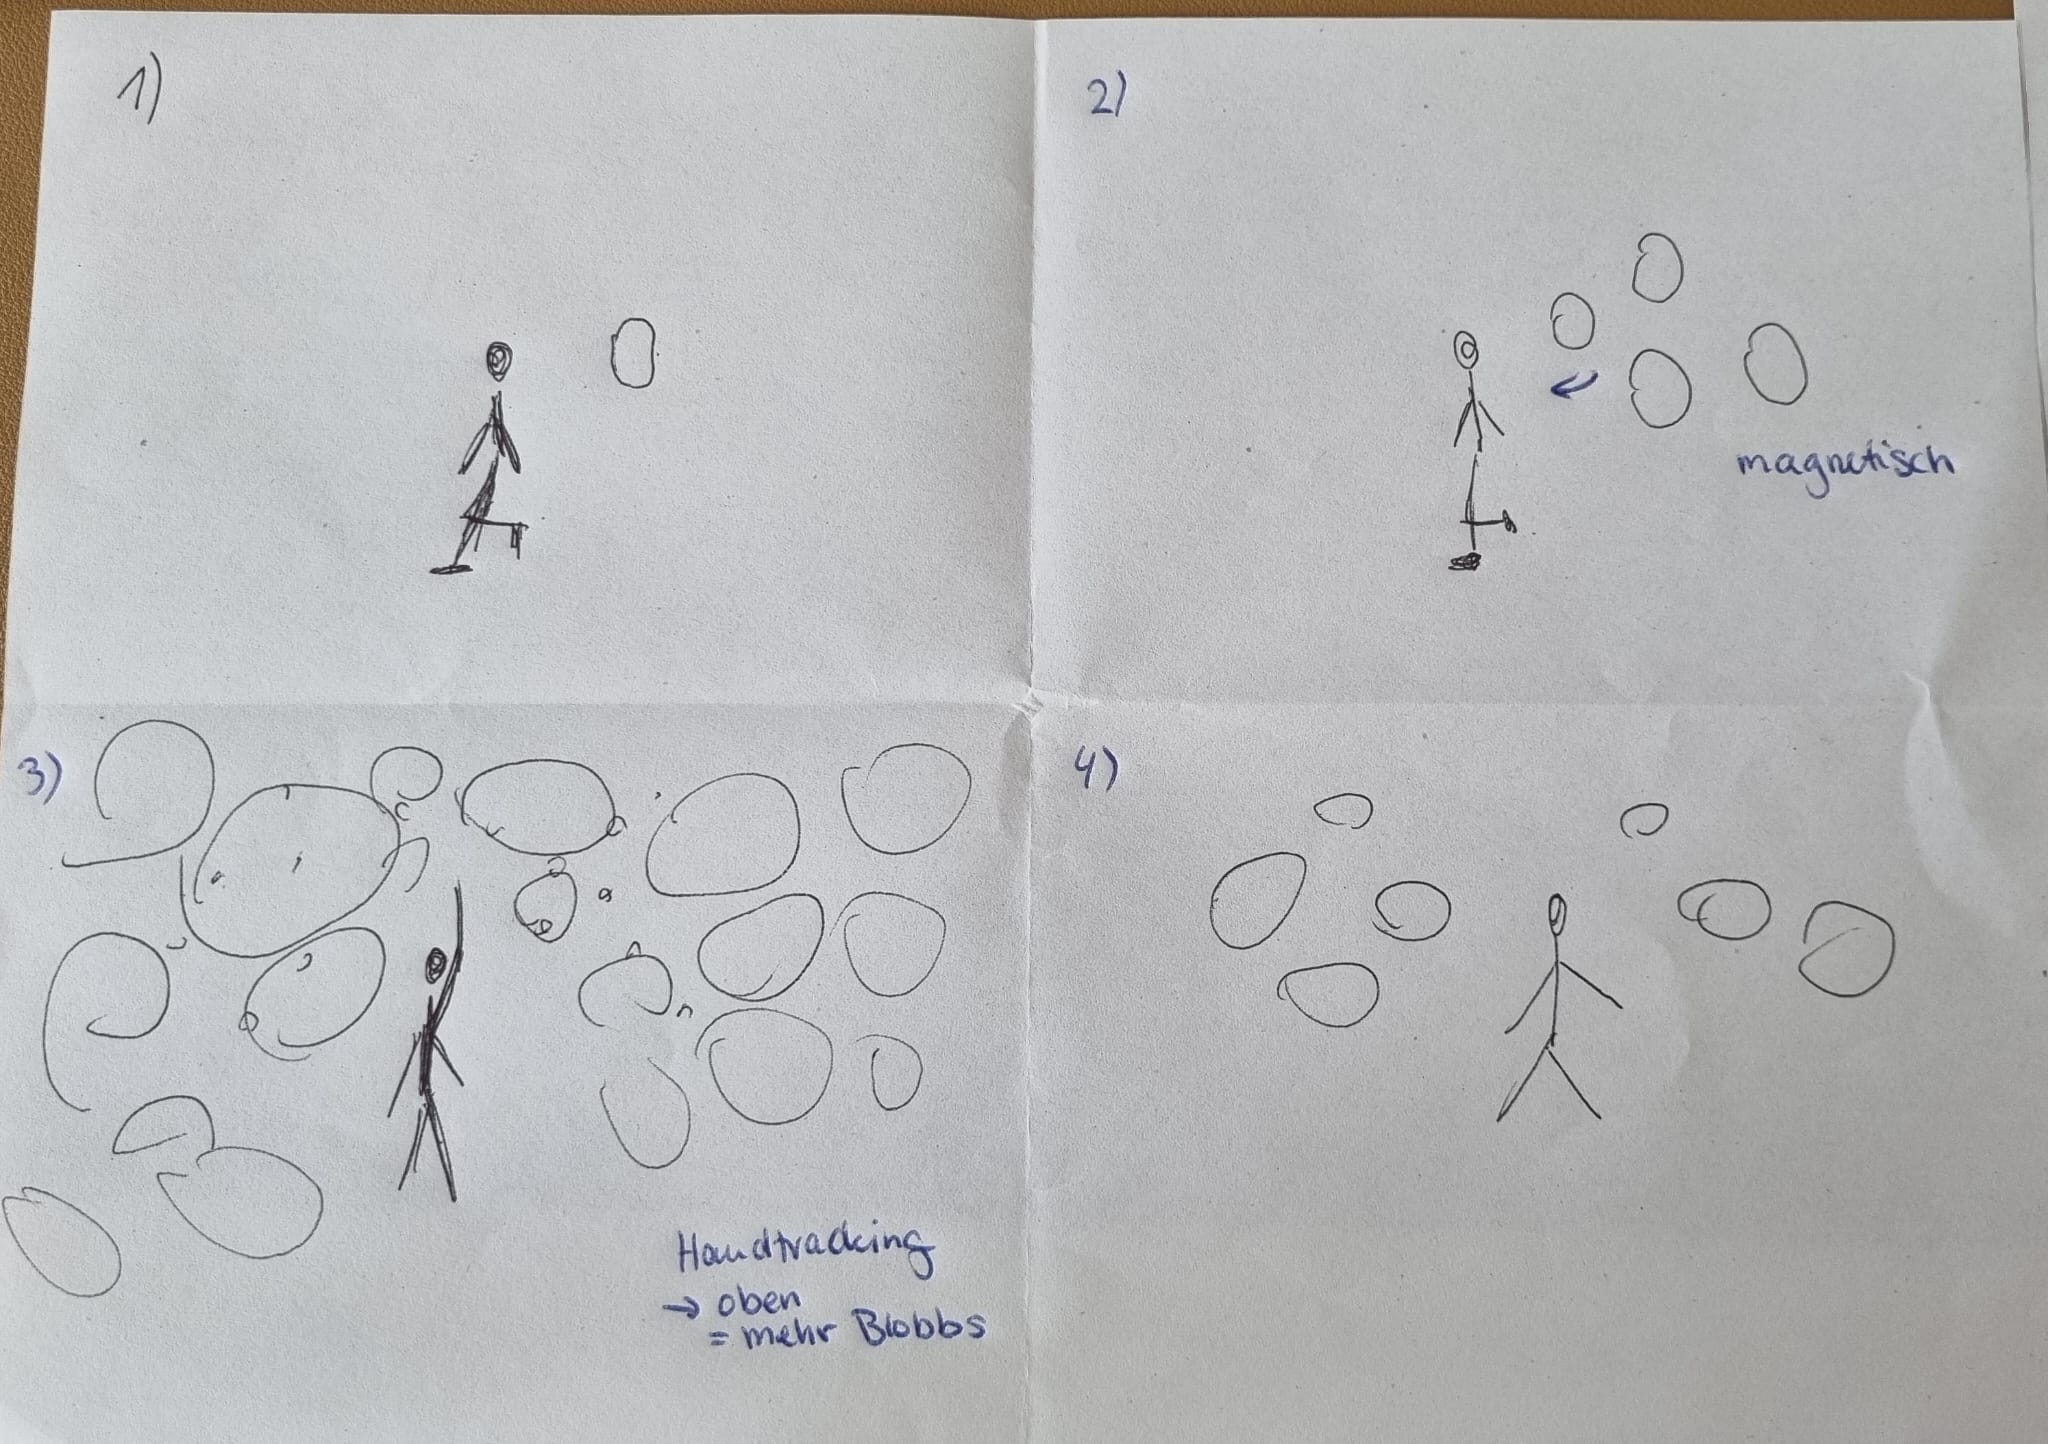 1)
2)
magnetisch
3)
Handtracking
→ oben
= mehr Blobbs
4)